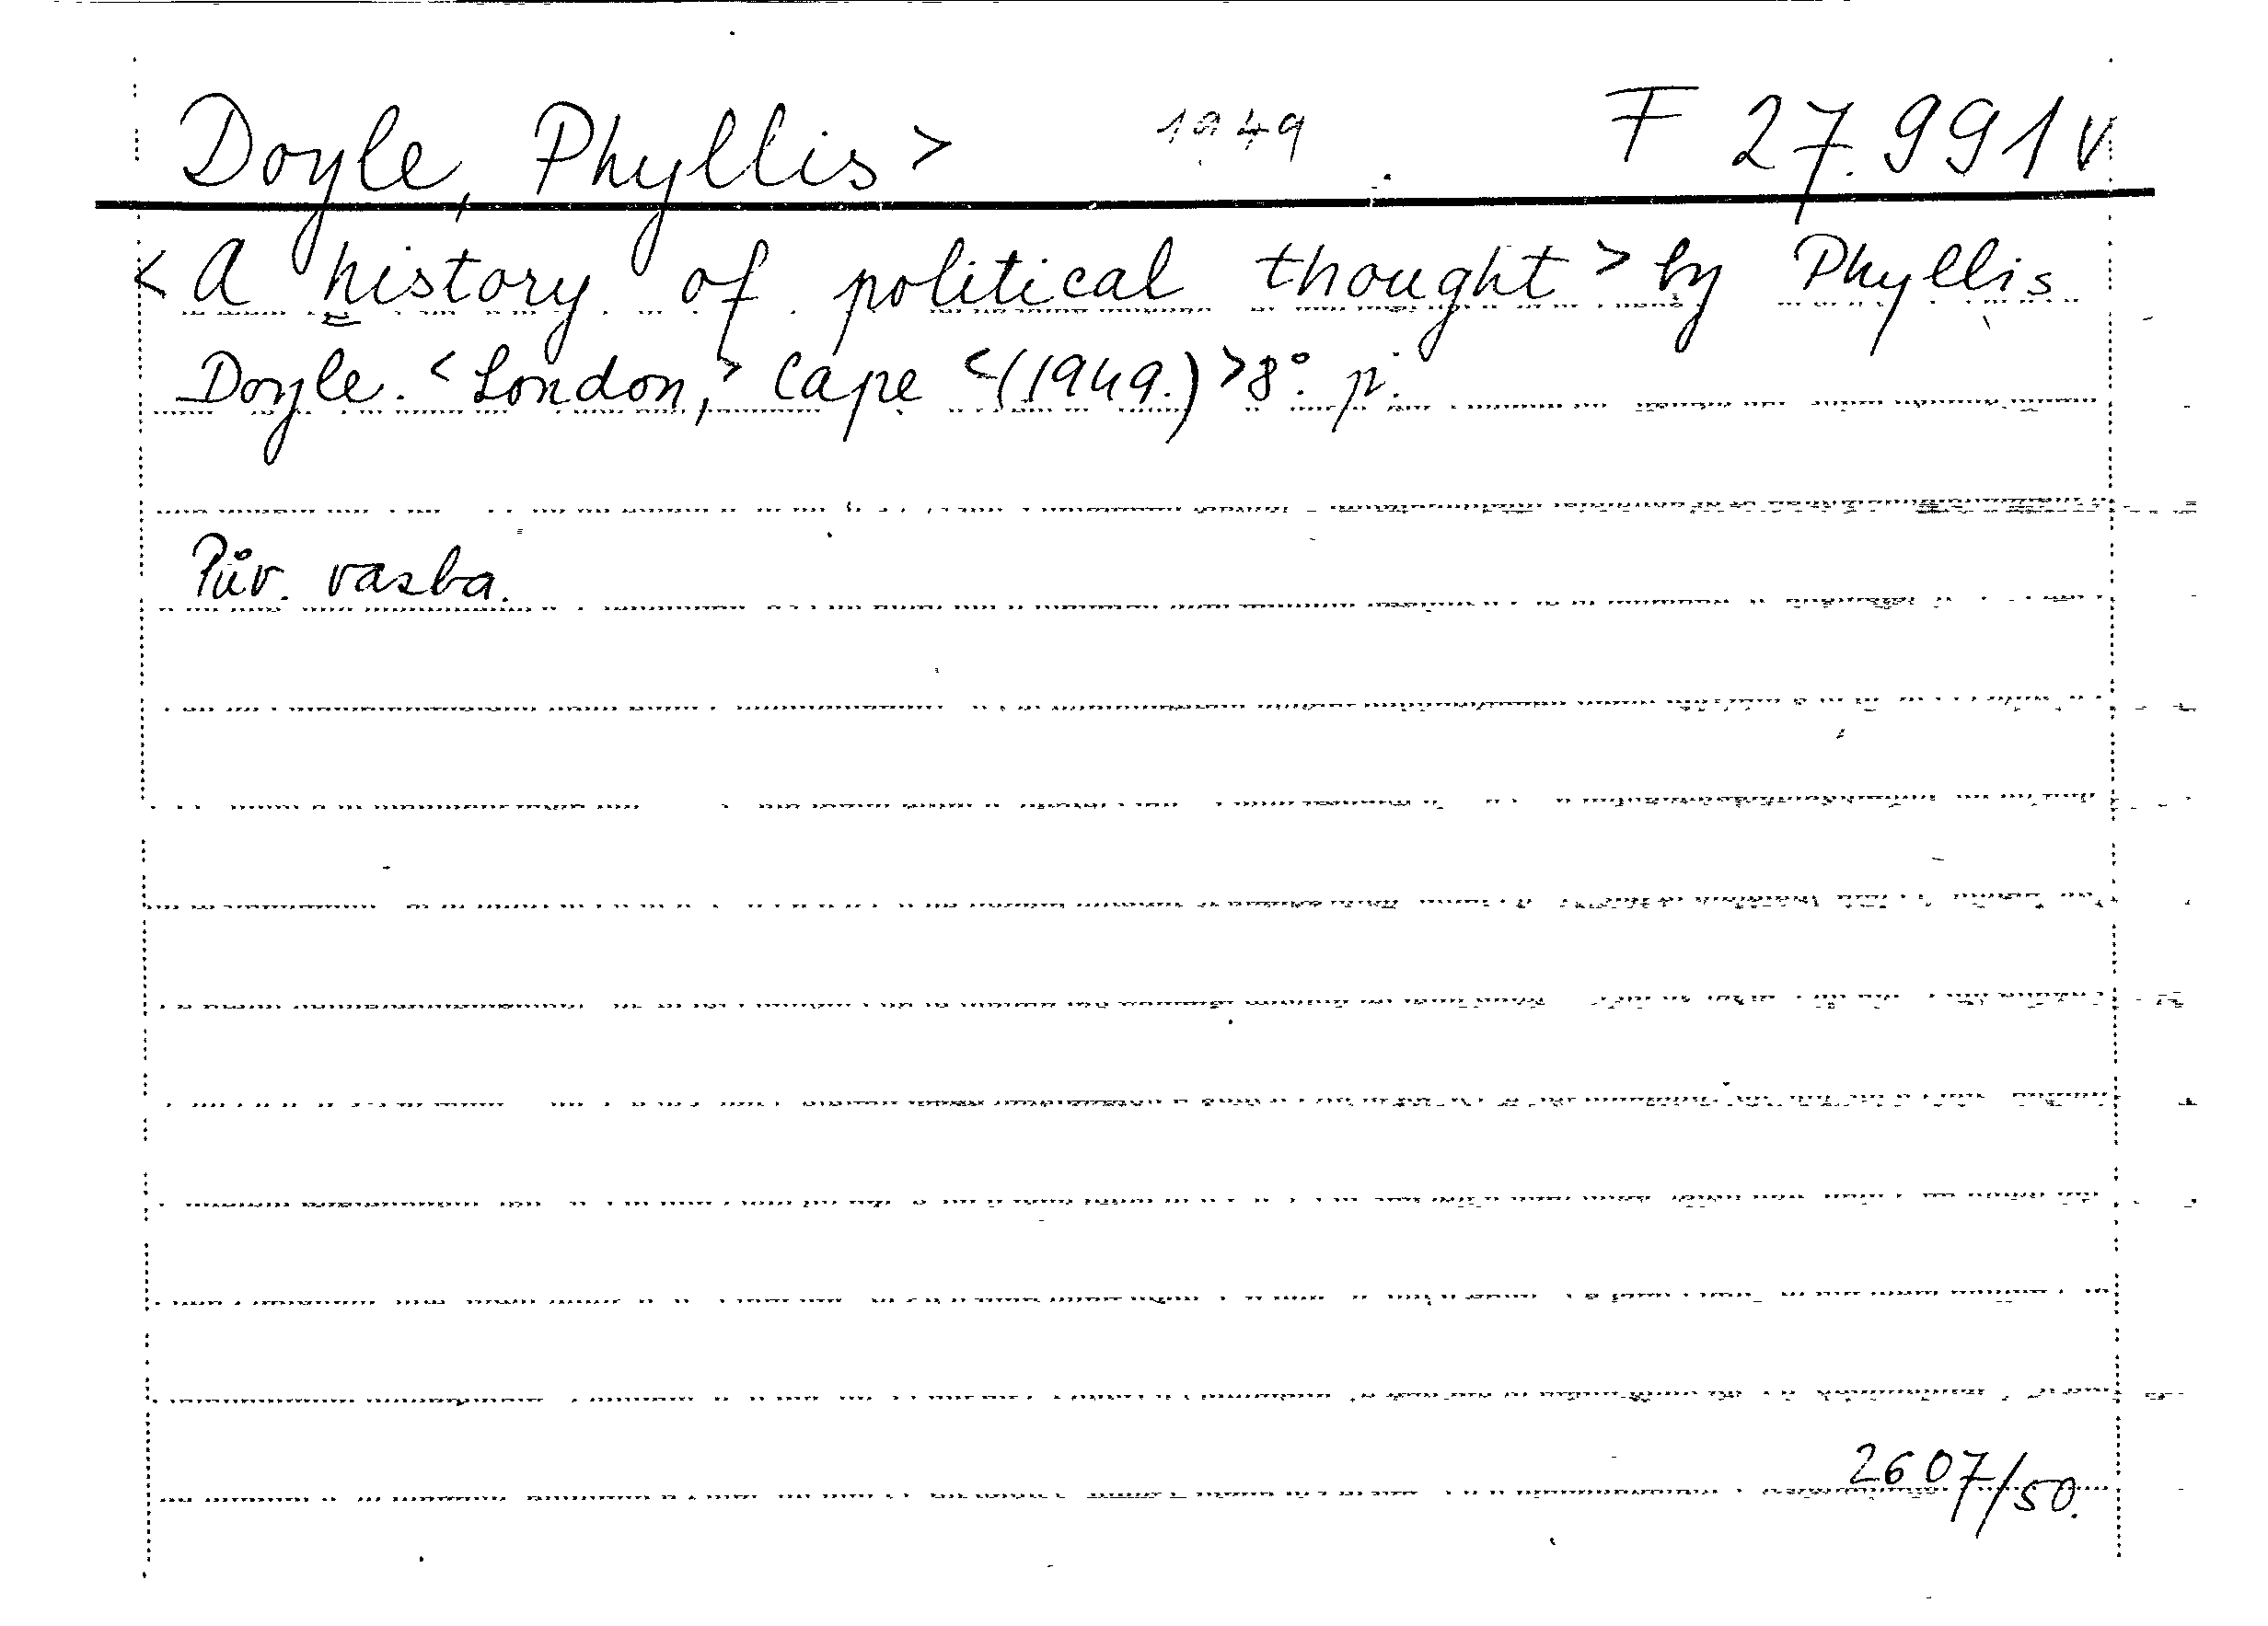 Doyle, Phyllis > 1949 F 27.991 v
< A history of political thought > by Phyllis
Doyle. < London, > Cape < (1949.) > 8°. p.
Pův. vazba.
2607/50.